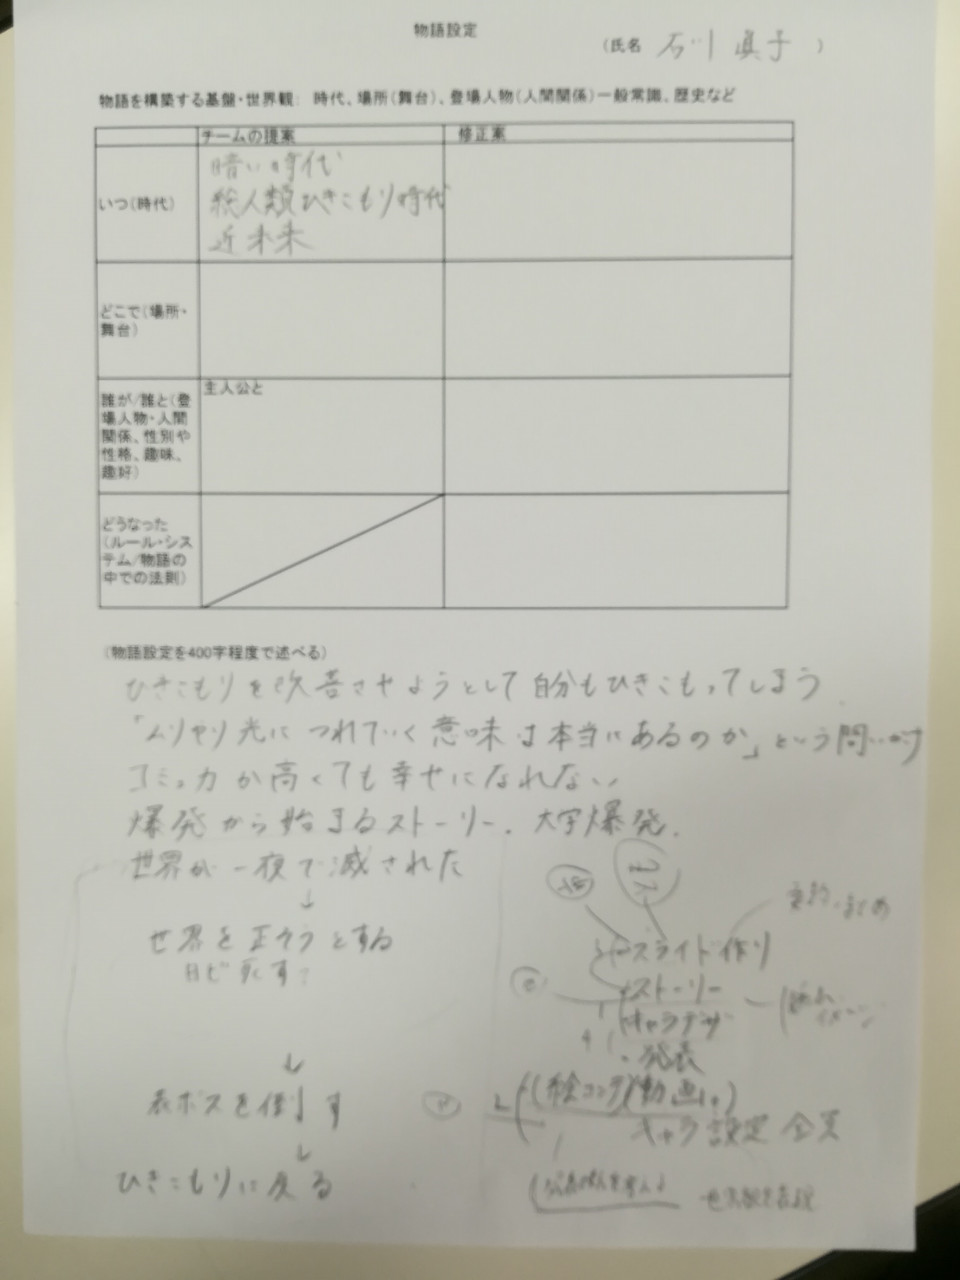 物語設定
(氏名 石川 真子 )
物語を構築する基盤・世界観: 時代、場所(舞台)、登場人物(人間関係)一般常識、歴史など
チームの提案
修正案
いつ(時代)
暗い時代
総人類ひきこもり時代
近未来
どこで(場所・
舞台)
誰が/誰と(登
場人物・人間
関係、性別や
性格、趣味、
趣好)
主人公と
どうなった
(ルール・シス
テム/物語の
中での法則)
(物語設定を400字程度で述べる)
ひきこもりを改善させようとして自分もひきこもってしまう
「ムリヤリ光につれていく意味は本当にあるのか」という問いかけ
コミュ力が高くても幸せになれない
爆発から始まるストーリー. 大宇爆発.
世界が一夜で滅された
↓
世界を正そうとする
↓
表ボスを倒す
↓
ひきこもりに戻る
スライド作り
ストーリー
キャラデザ
・発表
(絵コンテ)(動画。)
キャラ設定 全員